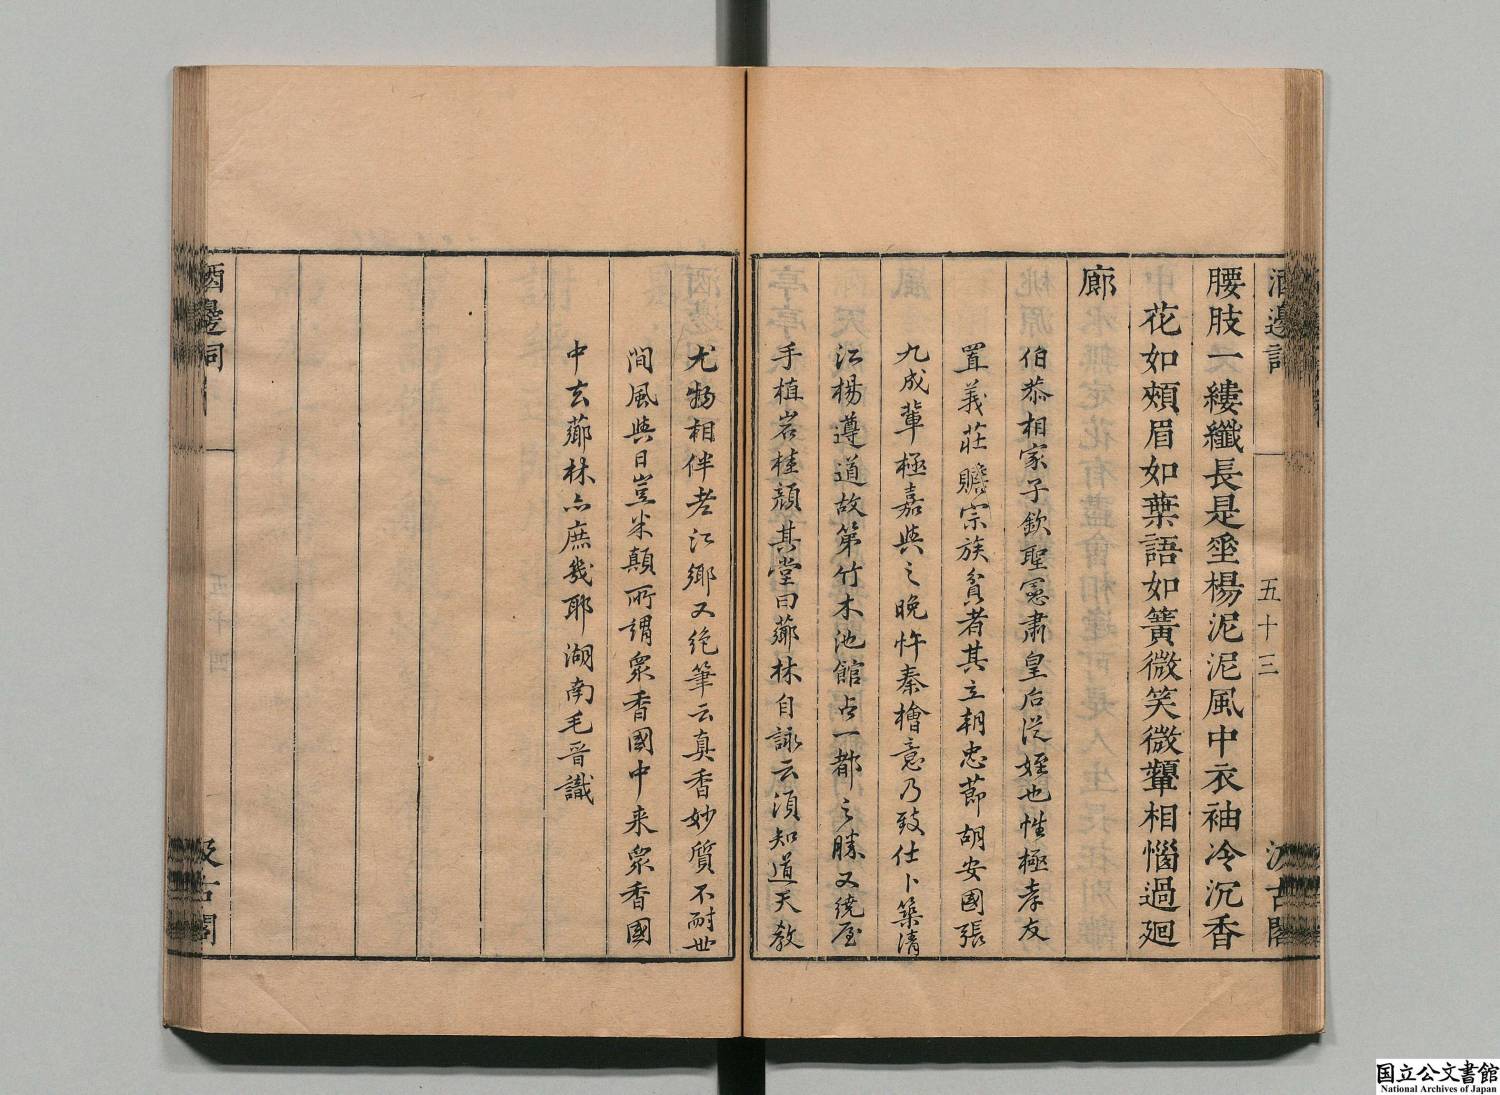 酒邊詞
五十三
汲古閣
腰肢一縷纖長是埀楊泥泥風中衣袖冷沉香
花如頰眉如葉語如簧微笑微顰相惱過廻
廊
伯恭相家子欽聖憲肅皇后從姪也性極孝友
置義莊贍宗族貧者其立朝忠節胡安國張
九成軰極嘉與之晚忤秦檜意乃致仕卜築清
江楊遵道故第竹木池館占一都之勝又繞屋
手植岩桂顔其堂曰薌林自詠云須知道天教
尤物相伴老江鄉又絶筆云真香妙質不耐世
間風與日豈米顛所謂衆香國中来衆香國
中去薌林亦庶幾耶湖南毛晉識
酒邊詞
汲古閣
国立公文書館
National Archives of Japan